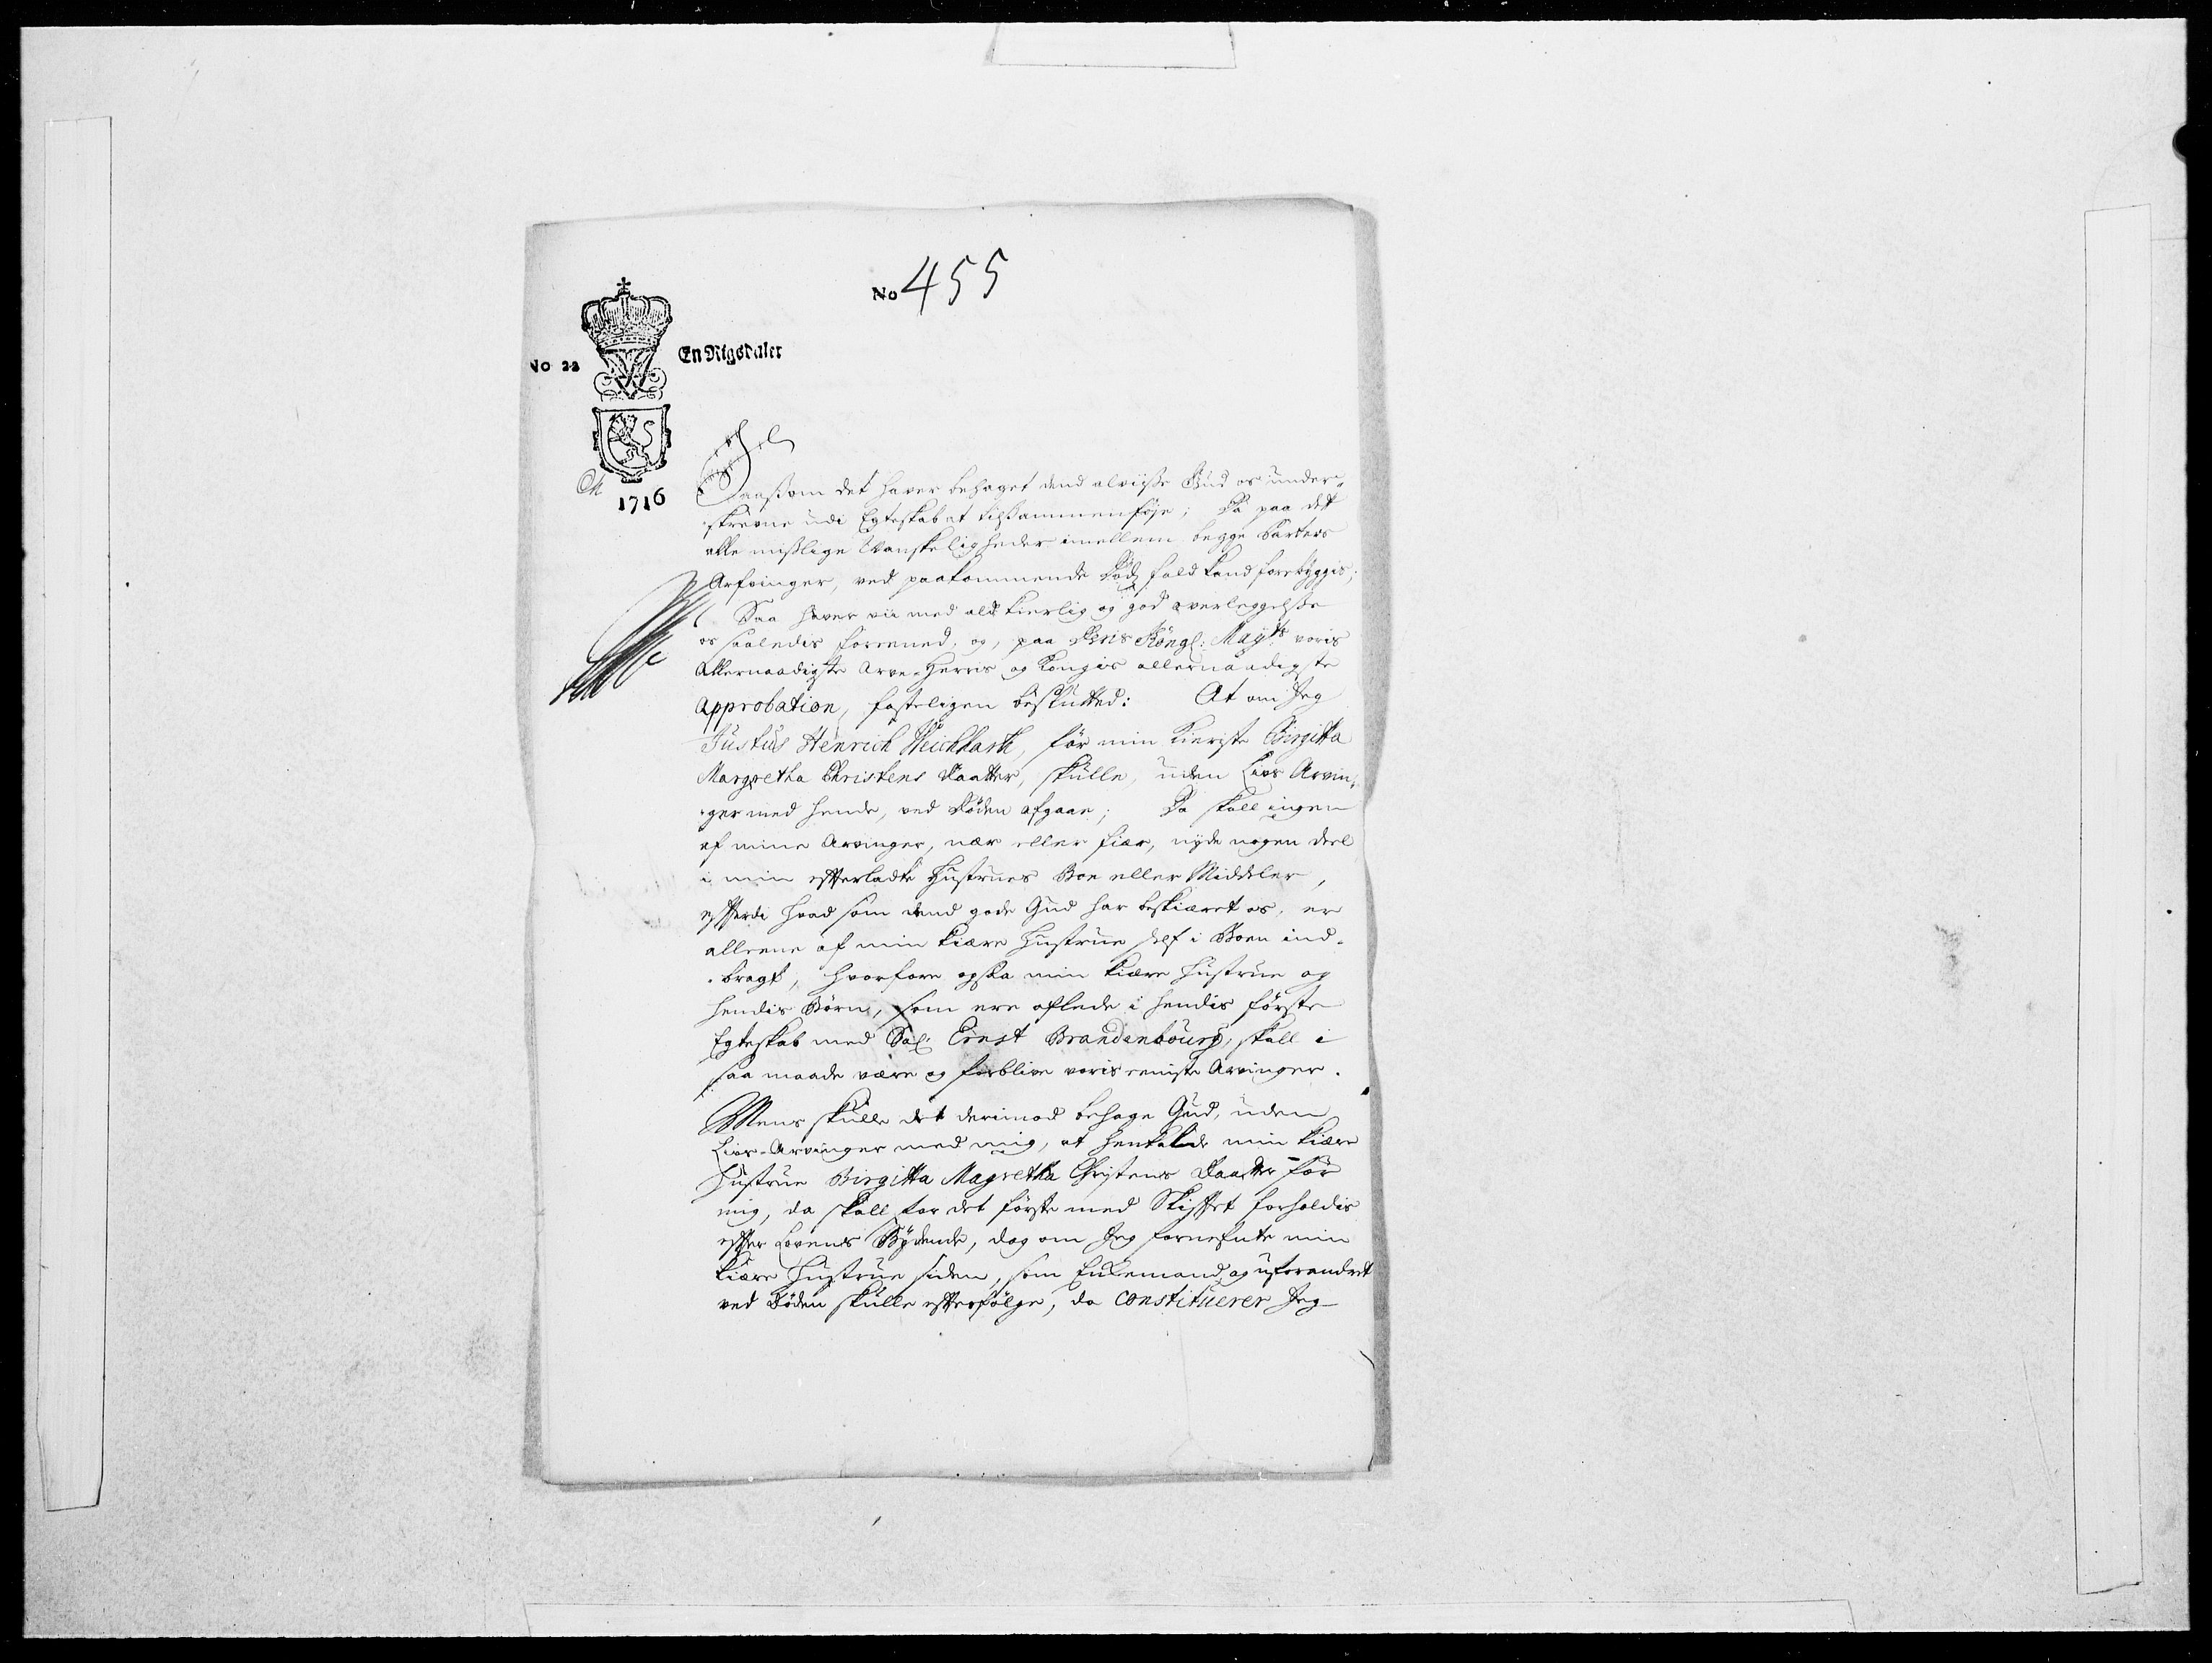 No 455
No 22
En Rigsdaler
1716
Saasom det haver behaget dend alviise Gud os under-
skrevne udi Egteskab at tilsammenføje; Da paa det
alle mislige Vanskeligheder imellem begge Parters
Arfvinger, ved paakommende Døds fald kand forebyggis;
Saa haver vii med ald kierlig og god overleggelse
os saaledis forened, og, paa Deris Kongl: Mayts voris
Allernaadigste Arve-Herris og Kongis allernaadigste
Approbation, fasteligen beslutted: At om Jeg
Justus Henrich Weichhart, før min Kieriste Birgitta
Margretha Christens Daatter, skulle, uden Livs Arvin-
ger med hende, ved Døden afgaae; Da skall ingen
af mine Arvinger, nær eller fiær, nyde nogen deel
i min efterladte Hustrues Boe eller Middeler,
efterdi hvad som dend gode Gud har beskiæret os, er
alleene af min kiære Hustrue self i Boen ind-
bragt, hvorfore ogsaa min kiære Hustrue og
hendis Børn, som ere aflede i hendis første
Egteskab med Sal: Ernst Brandenbourg, skall i
saa maade være og forblive voris eeniste Arvinger.
Mens skulle det derimod behage Gud, uden
Livs-Arvinger med mig, at henkalde min kiære
Hustrue Birgitta Magretha Christens Daatter før
mig, da skall for det første med Skiftet forholdis
efter Lovens Bydende, dog om Jeg fornefnte min
kiære Hustrue siden, som Enkemand og uforandret
ved Døden skulle efterfølge, da constituerer Jeg